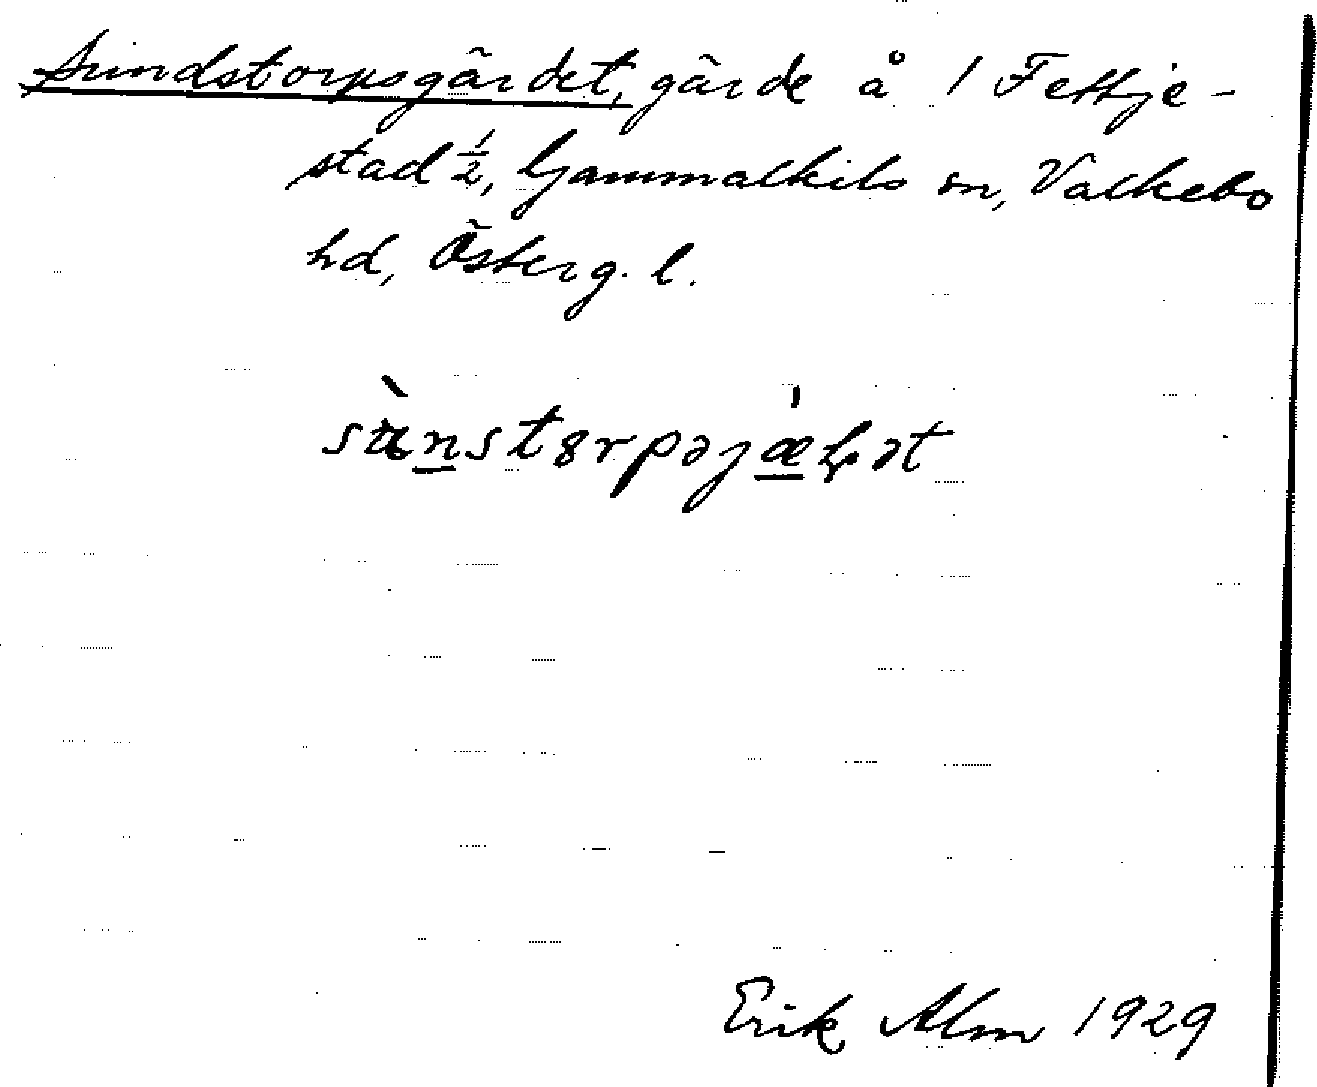 Sundstorpsgärdet, gärde å 1 Fettje-
stad ½, Gammalkils sn, Valkebo
hd, Österg. l.
Erik Alm 1929